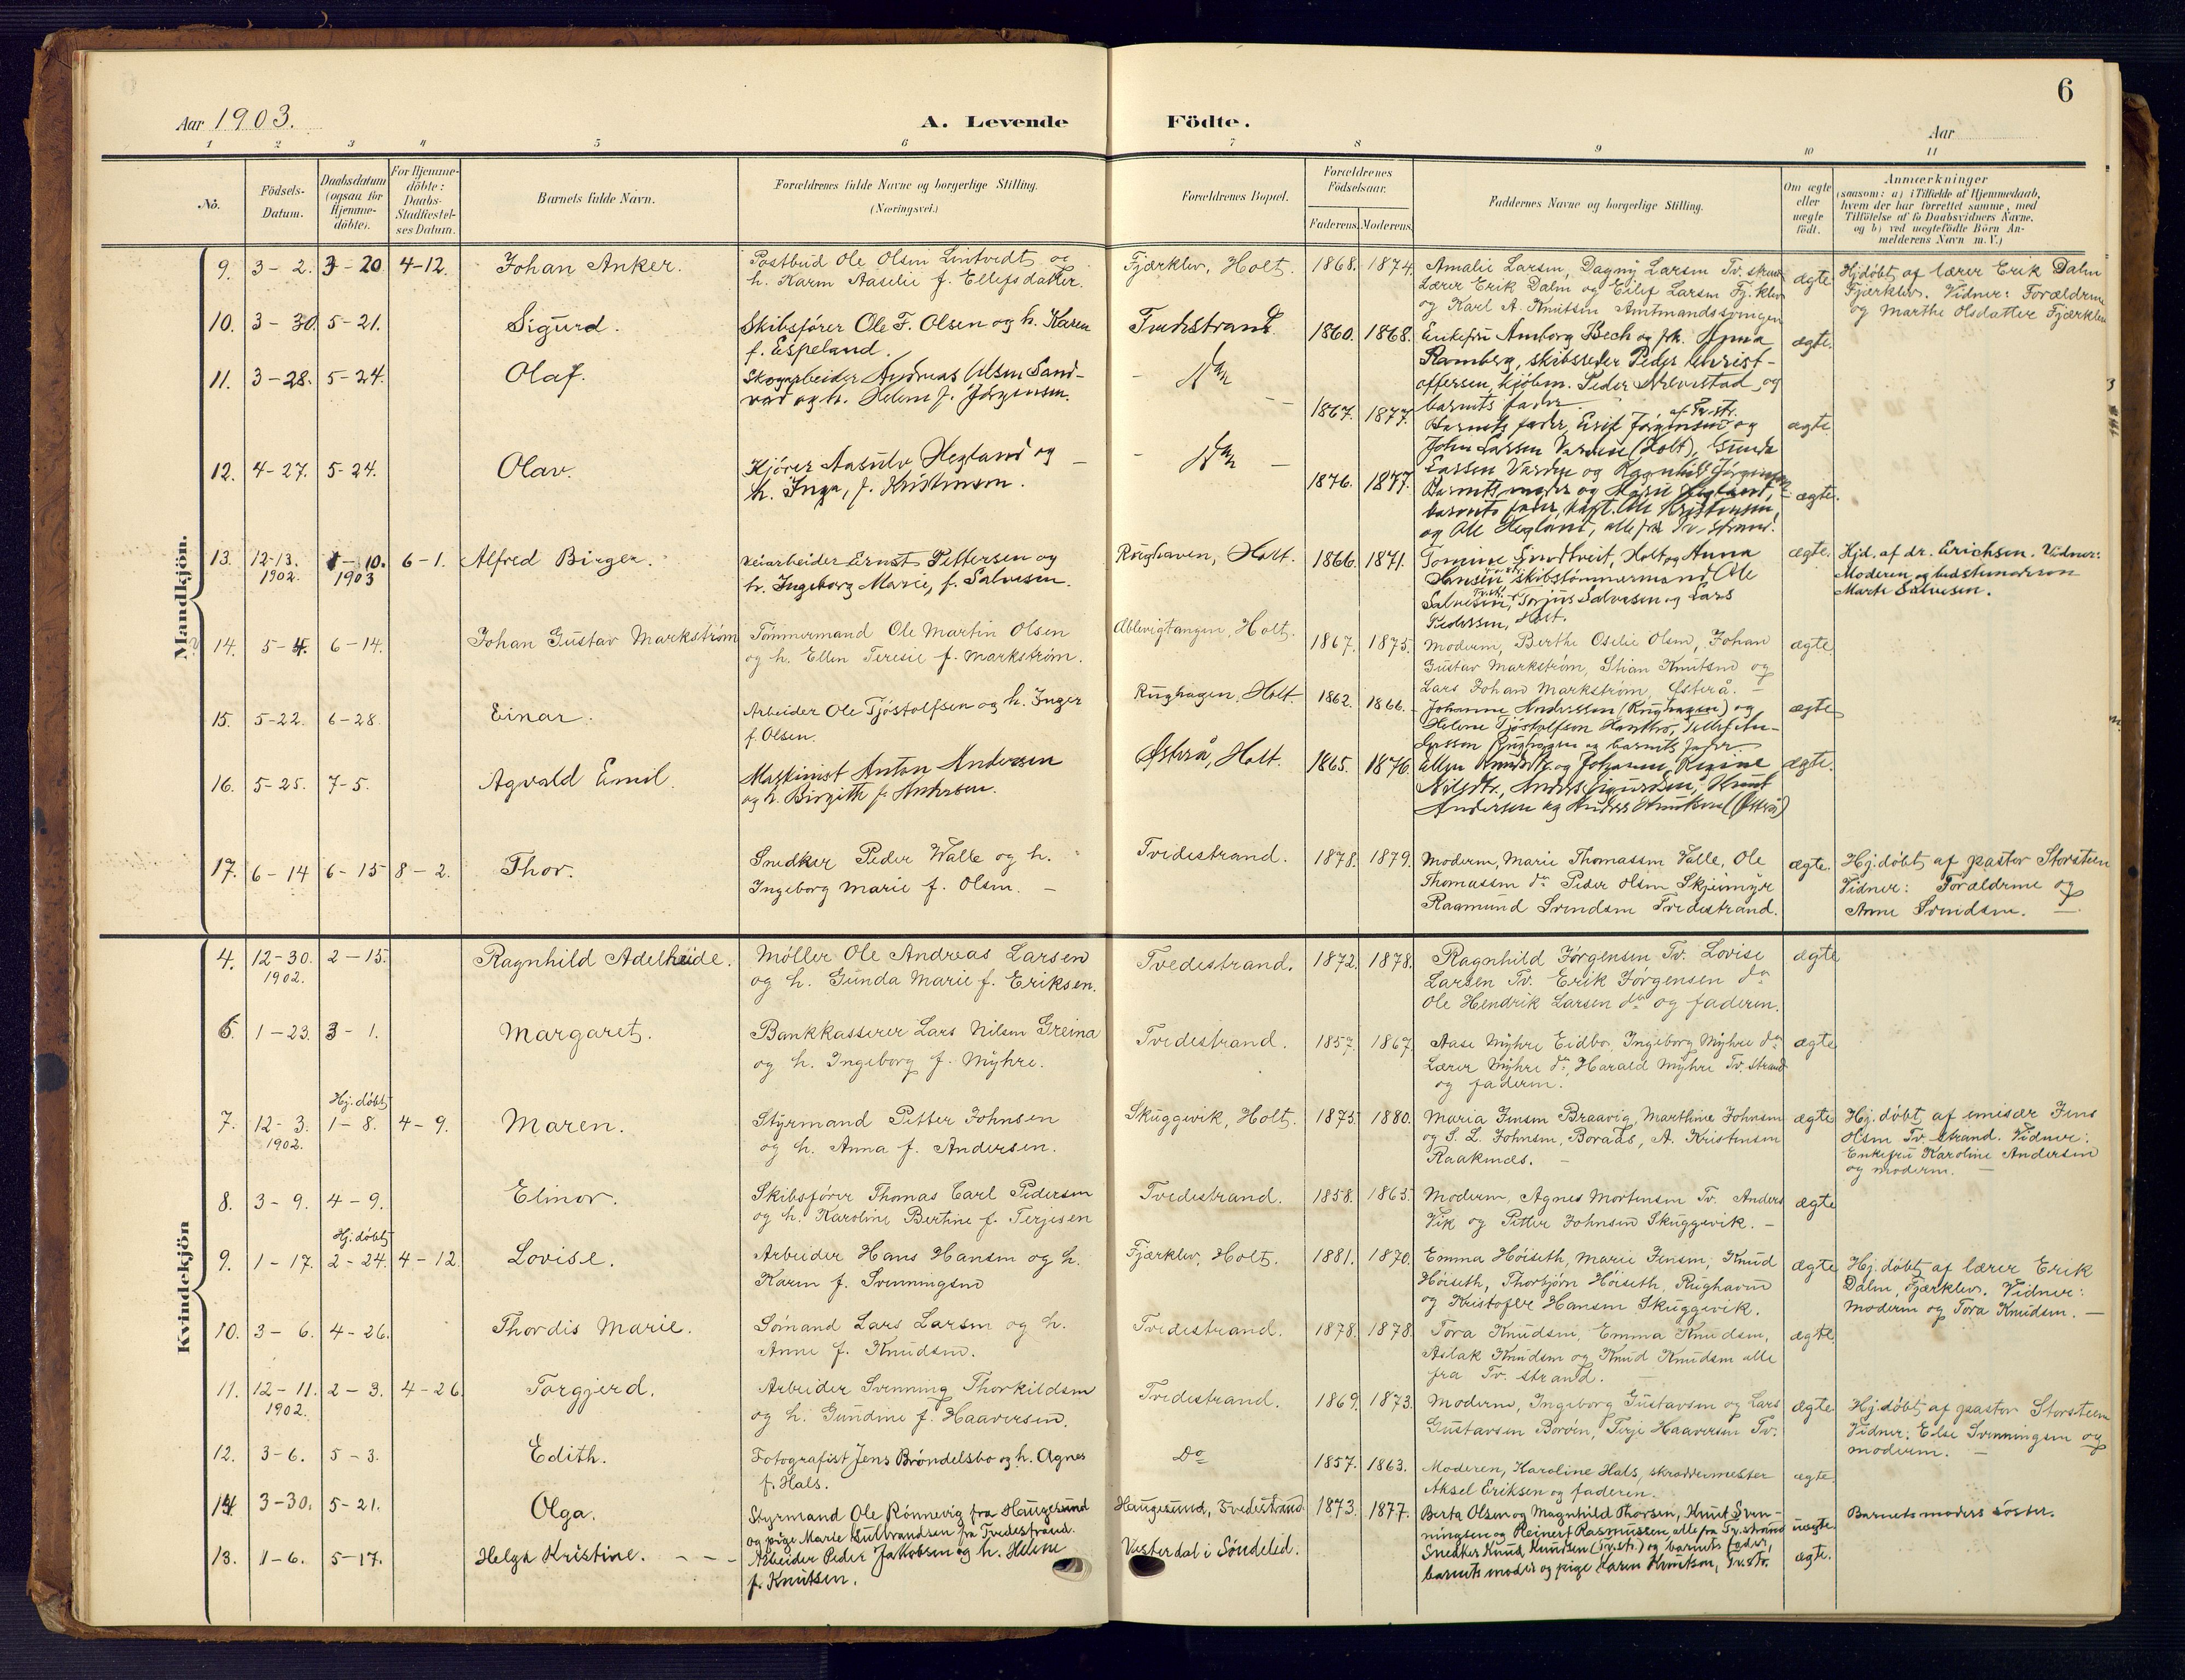 6
Aar 1903.
A. Levende Födte.
Aar
1 2 3 4 5 6 7 8 9 10 11
No.
Födsels-Datum.
Daabsdatum (ogsaa for Hjemme-döbte).
For Hjemme-döbte: Daabs-Stadfæstel-ses Datum.
Barnets fulde Navn.
Forældrenes fulde Navne og borgerlige Stilling.
(Næringsvei.)
Forældrenes Bopæl.
Forældrenes Födselsaar.
Faderens. Moderens.
Faddernes Navne og borgerlige Stilling.
Om ægte eller uægte födt.
Anmærkninger
(saasom: a) i Tilfælde af Hjemmedaab, hvem der har forrettet samme, med Tilföielse af to Daabsvidners Navne, og b) ved uægtefödte Börn Anmelderens Navn m. V.)
Mandkjön.
9. 3-2. 3-20 4-12. Johan Anker.
Postbud Ole Olsen Lintvedt og
h. Karen Aaselie f. Ellefsdatter.
Fjærklev, Holt. 1868. 1874.
Amalie Larsen, Dagny Larsen Tv.strand
Lærer Erik Dalen og Eilef Larsen Fj.klev
og Karl A. Knutsen Amtmandssvingen
ægte
Hjdøbt af lærer Erik Dalen
Fjærklev. Vidner: Forældrene
og Marthe Olsdatter Fjærklev
10. 3-30. 5-21. Sigurd.
Skibsfører Ole F. Olsen og h. Karen
f. Espeland.
Tvedestrand. 1860. 1868.
Enkefru Amborg Bech og frk. Anna
Ramberg, skibsreder Peder Christ-
offersen, kjøbm. Peder Grevstad og
barnets fader.
ægte.
11. 3-28. 5-24. Olaf.
Skogarbeider Andreas Olsen Sand-
vad og h. Helene f. Jørgensen.
- Do 1867. 1877.
Barnets fader, Erik Jørgensen og af Tv.str.
John Larsen Varden (Holt), Gunda
Larsen Varden og Ragnhild Jørgensen
ægte
12. 4-27. 5-24. Olav.
Kjører Aasulv Hegland og
h. Inga, f. Kristensen.
- Do - 1876. 1877.
Barnets moder og Marie Hegland,
barnets fader, kapt. Ole Kristensen,
og Ole Hegland, alle fra Tv.strand.
ægte.
13. 12-13. 1902. 1-10. 1903 6-1. Alfred Birger.
Veiarbeider Ernst Pettersen og
h. Ingeborg Marie, f. Salvesen.
Rughaven, Holt. 1866. 1871.
Tomine Grodtveit, Holt og Anna
Hansen, skibstømmermand Ole
Salvesen, Torjus Salvesen og Lars
Pedersen, Holt.
ægte.
Hjd. af dr. Erichsen. Vidner:
Moderen og bedstemoderen
Marte Salvesen.
14. 5-4. 6-14. Johan Gustav Markstrøm
Tømmermand Ole Martin Olsen
og h. Ellen Teresie f. Markstrøm.
Ablevigtangen, Holt. 1867. 1875.
Moderen, Berthe Oselie Olsen, Johan
Gustav Markstrøm, Stian Knutsen og
Lars Johan Markstrøm, Østerå. -
ægte
15. 5-22. 6-28. Einar.
Arbeider Ole Tjøstolfsen og h. Inger
f. Olsen.
Rughagen, Holt. 1862. 1866.
Johanne Anderssen (Rughagen) og
Helene Tjøstolfsen
Rughagen og barnets fader
ægte
16. 5-25. 7-5. Agvald Emil.
Maskinist Anton Andersen
og h. Birgitte f. Andersen.
Østerå, Holt. 1865. 1876.
Ellen og Johanne Regine
Nilsdtr., Anders Sigurdsen, Knut
Andersen og Anders Knutsen (Østerå)
ægte.
17. 6-14 6-15 8-2. Thor.
Snedker Peder Walle og h.
Ingeborg Marie f. Olsen. -
Tvedestrand. 1878. 1879.
Moderen, Marie Thomassen Valle, Ole
Thomassen do Peder Olsen Skjeimyr
Raamund Svendsen Tvedestrand.
ægte.
Hj.døbt af pastor Storsteen
Vidner: Forældrene og
Anne Svendsen. -
Kvindekjön
4. 12-30. 1902. 2-15. Ragnhild Adelheide.
Møller Ole Andreas Larsen
og h. Gunda Marie f. Eriksen.
Tvedestrand. 1872. 1878.
Ragnhild Jørgensen Tv. Lovise
Larsen Tv. Erik Jørgensen do
Ole Hendrik Larsen do og faderen.
ægte
6. 1-23. 3-1. Margaret.
Bankkasserer Lars Nilsen Greina
og h. Ingeborg f. Myhre.
Tvedestrand. 1857. 1867.
Aase Myhre Eidbo, Ingeborg Myhre do
Lærer Myhre do, Harald Myhre Tv. strand
og faderen.
ægte
7. 12-3. 1902. Hj.døbt 1-8. 4-9. Maren.
Styrmand Petter Johnsen
og h. Anna f. Andersen.
Skuggevik, Holt. 1875. 1880.
Maria Jensen Braavig, Marthine Johnsen
og S. L. Johnsen, Boraas, A. Kristensen
Raaknes. -
ægte
Hj.døbt af emisær Jens
Olsen Tv. strand. Vidner:
Enkefru Karoline Andersen
og moderen. -
8. 3-9. 4-9. Elinor.
Skibsfører Thomas Carl Pedersen
og h. Karoline Bertine f. Terjesen
Tvedestrand. 1858. 1865.
Moderen, Agnes Mortensen Tv. Anders
Vik og Petter Johnsen Skuggevik. -
ægte
9. 1-17. Hj.døbt 2-24. 4-12. Lovise.
Arbeider Hans Hansen og h.
Karen f. Svenningsen
Fjærklev, Holt. 1881. 1870.
Emma Høiseth, Marie Jensen, Knud
Høiseth, Thorbjørn Høiseth, Rughaven
og Kristofer Hansen Skuggevik.
ægte
Hj.døbt af lærer Erik
Dalen, Fjærklev. Vidner:
Moderen og Tora Knudsen. -
10. 3-6. 4-26. Thordis Marie.
Sømand Lars Larsen og h.
Anne f. Knudsen.
Tvedestrand. 1878. 1878.
Tora Knudsen, Emma Knudsen,
Aslak Knudsen og Knud Knudsen alle
fra Tv. strand. -
ægte
11. 12-11. 1902. 2-3. 4-26. Torgjerd.
Arbeider Svenning Thorkildsen
og h. Gundine f. Haaversen.
Tvedestrand. 1869. 1873.
Moderen, Ingeborg Gustavsen og Lars
Gustavsen Borøen, Terje Haaversen Tv.
ægte
Hj.døbt af pastor Storsteen
Vidner: Else Svenningsen og
moderen. -
12. 3-6. 5-3. Edith.
Fotografist Jens Brøndelsbo og h. Agnes
f. Hals.
Do 1857. 1863.
Moderen, Karoline Hals, skræddermester
Aksel Eriksen og faderen.
ægte
14. 3-30. 5-21. Olga.
Styrmand Ole Rønnevig fra Haugesund
og pige Marie Gulbrandsen fra Tvedestrand.
Haugesund, Tvedestrand 1873. 1877.
Berta Olsen og Magnhild Thorsen, Knut Sven-
ningsen og Reinert Rasmussen, alle fra Tv.strand
uægte
Barnets moders søster.
13. 1-6. 5-17. Helga Kristine. - - -
Arbeider Peder Jakobsen og h. Helene
f. Knutsen.
Vesterdal i Søndeled.
Snedker Knud Knudsen (Tv.str.) og barnets fader,
barnets moder og pige Karen Knutson, Tv.str.
ægte.